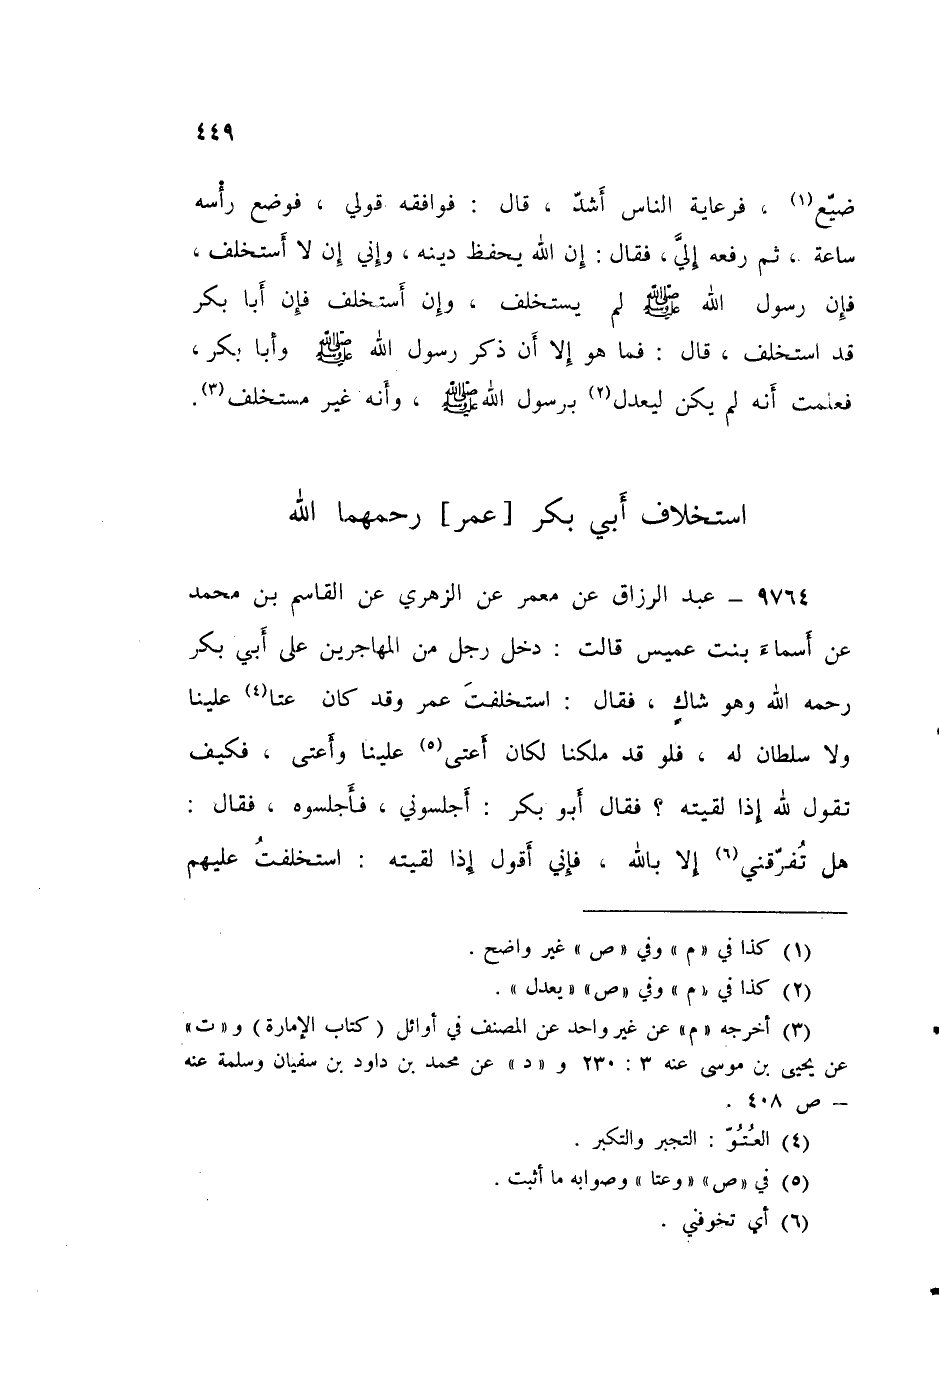 ٤٤٩
ضيّع(١) ، فرعاية الناس أَشدّ ، قال : فوافقه قولي ، فوضع رأْسه
ساعة ، ثم رفعه إِليَّ ، فقال : إِن الله يحفظ دينه ، وإِني إِن لا أَستخلف ،
فإِن رسول الله ﷺ لم يستخلف ، وإِن أَستخلف فإِن أَبا بكر
قد استخلف ، قال : فما هو إِلا أَن ذكر رسول الله ﷺ وأَبا بكر ،
فعلمت أَنه لم يكن ليعدل(٢) برسول الله ﷺ ، وأَنه غير مستخلف(٣) .
استخلاف أَبي بكر [عمر] رحمهما الله
٩٧٦٤ – عبد الرزاق عن معمر عن الزهري عن القاسم بن محمد
عن أَسماءَ بنت عميس قالت : دخل رجل من المهاجرين على أَبي بكر
رحمه الله وهو شاكٍ ، فقال : استخلفتَ عمر وقد كان عتا(٤) علينا
ولا سلطان له ، فلو قد ملكنا لكان أَعتى(٥) علينا وأَعتى ، فكيف
تقول لله إِذا لقيته ؟ فقال أَبو بكر : أَجلسوني ، فأَجلسوه ، فقال :
هل تُفرّقني(٦) إِلا بالله ، فإِني أَقول إِذا لقيته : استخلفتُ عليهم
(١) كذا في «م» وفي «ص» غير واضح .
(٢) كذا في «م» وفي «ص» «يعدل» .
(٣) أخرجه «م» عن غير واحد عن المصنف في أوائل (كتاب الإمارة) و «ت»
عن يحيى بن موسى عنه ٣ : ٢٣٠ و «د» عن محمد بن داود بن سفيان وسلمة عنه
– ص ٤٠٨ .
(٤) العُتُوّ : التجبر والتكبر .
(٥) في «ص» «وعتا» وصوابه ما أثبت .
(٦) أي تخوفني .